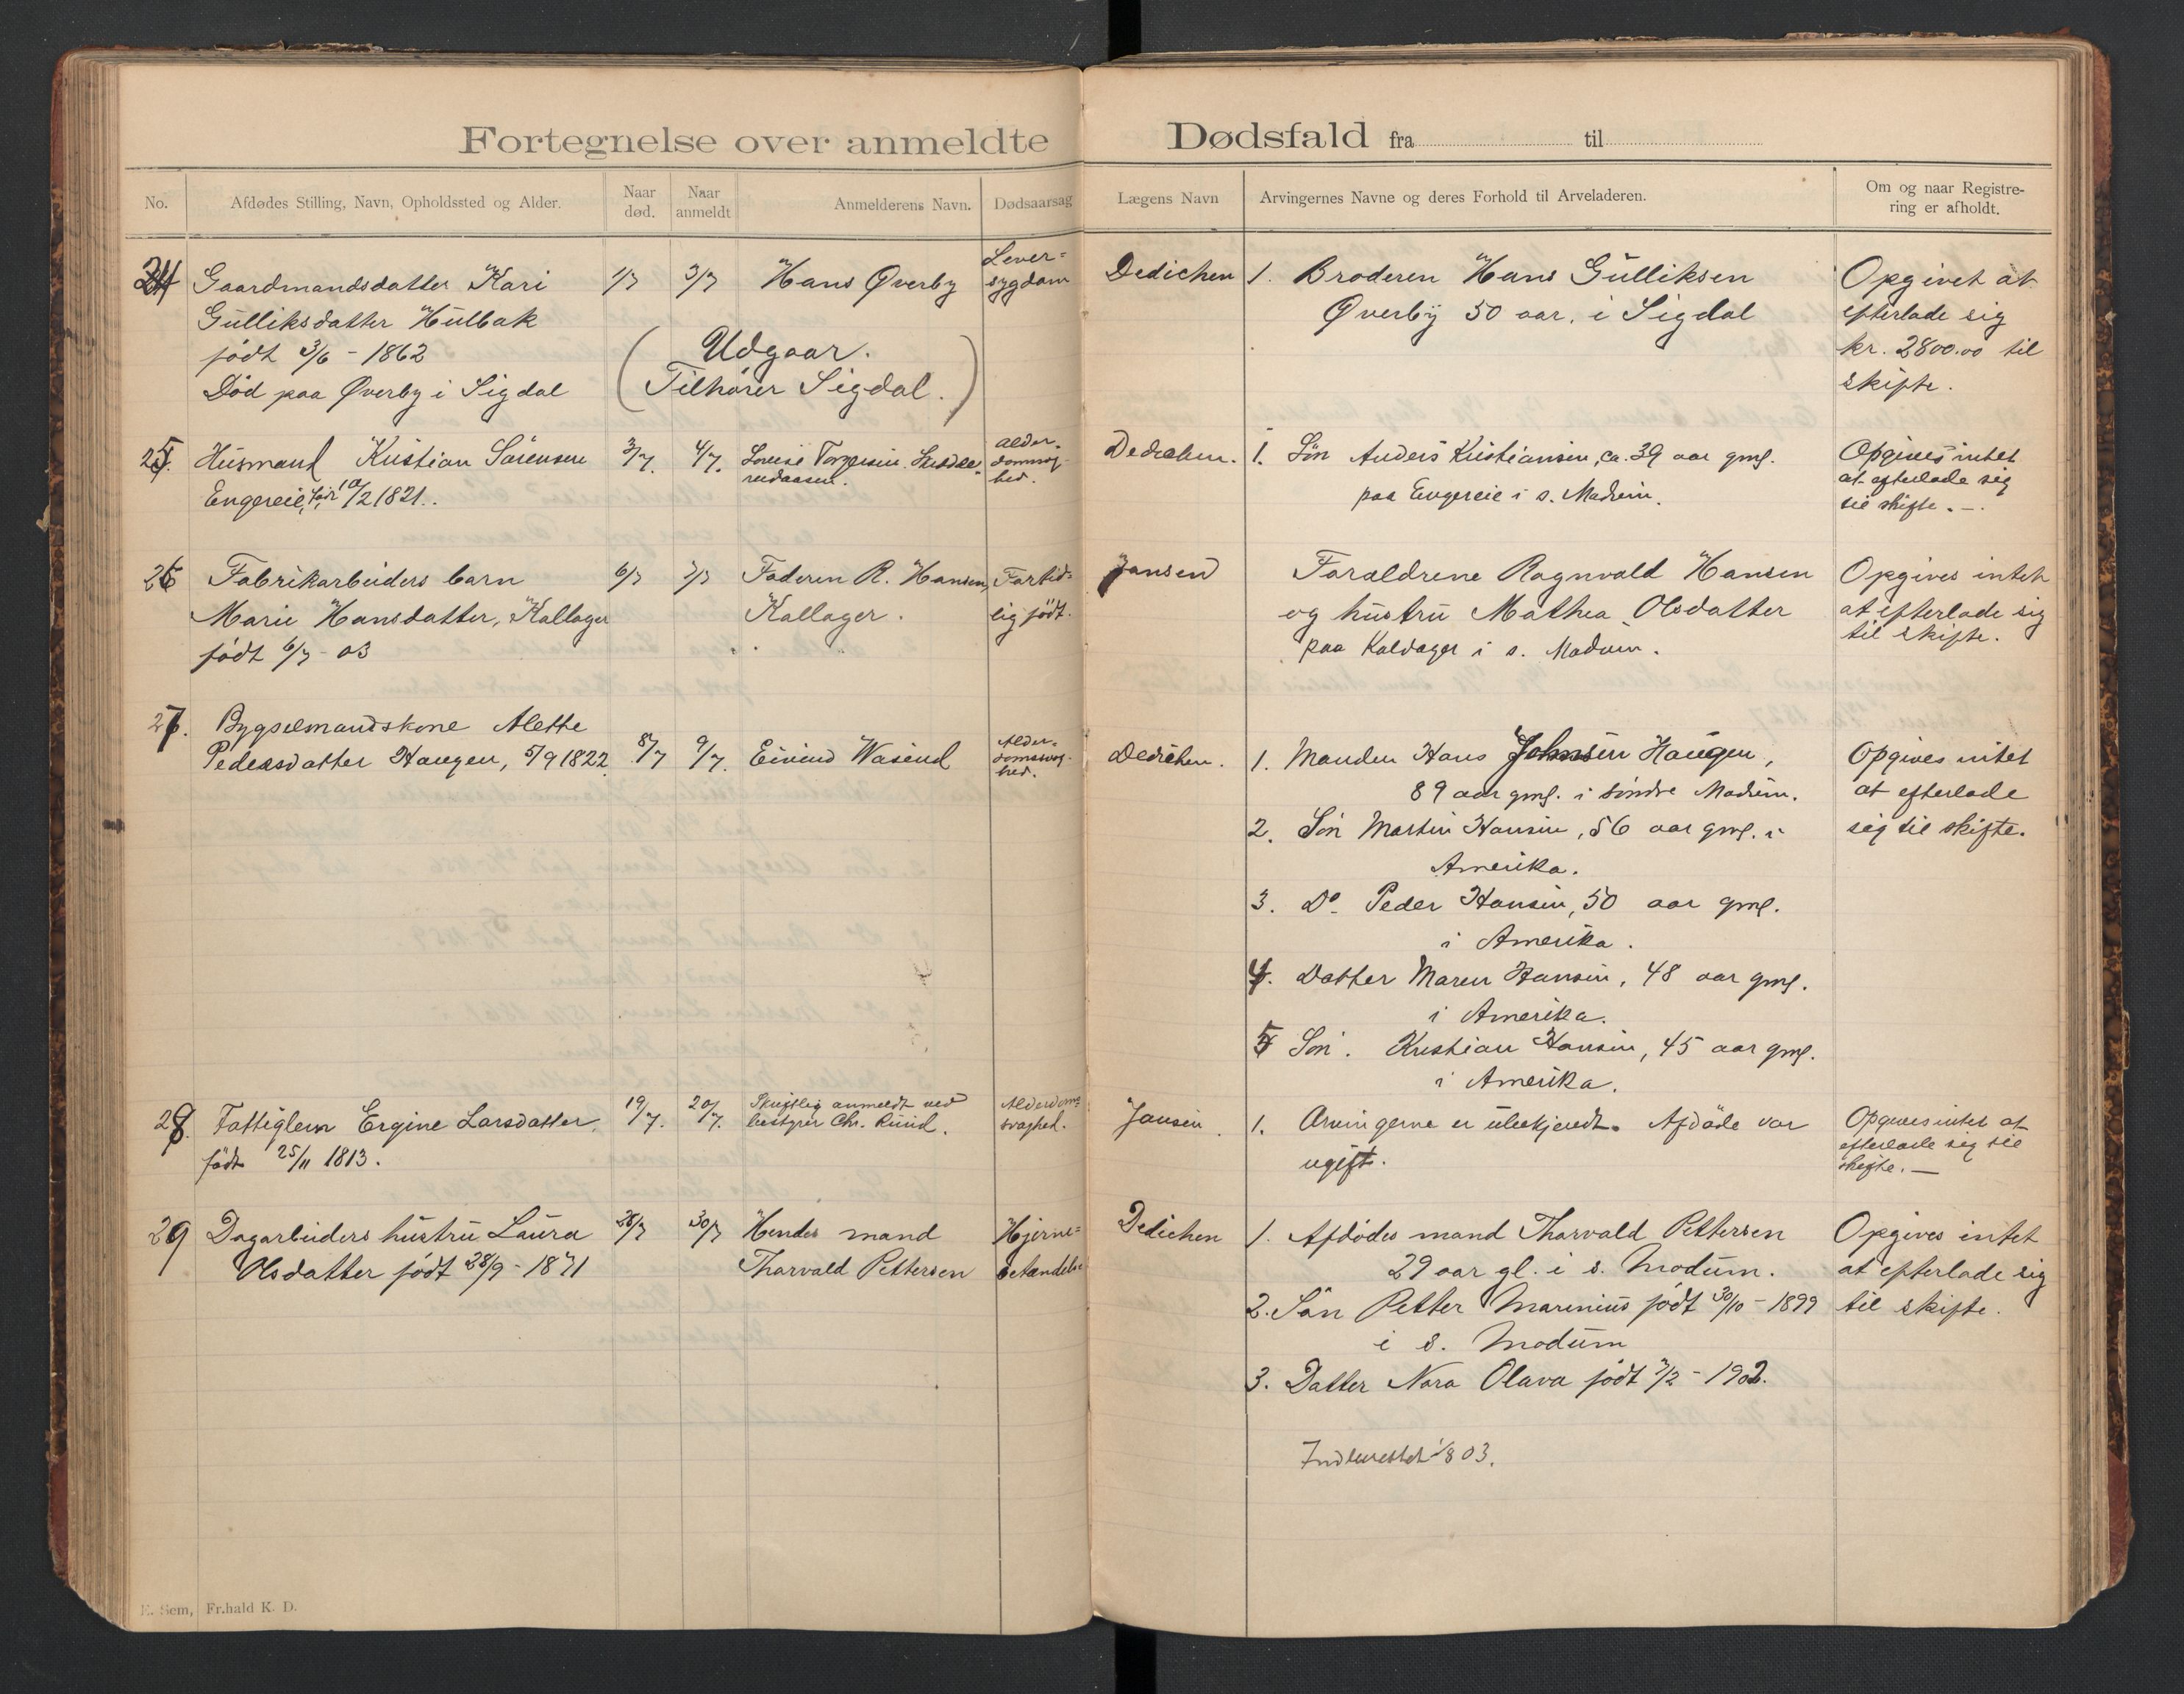 Fortegnelse over anmeldte Dødsfald fra til
No. Afdødes Stilling, Navn, Opholdssted og Alder. Naar død. Naar anmeldt Anmelderens Navn. Dødsaarsag Lægens Navn Arvingernes Navne og deres Forhold til Arveladeren. Om og naar Registrering er afholdt.
24 Gaardmandsdatter Kari
Gulliksdatter Hulbak
født 3/6 - 1862
Død paa Øverby i Sigdal
1/7 3/7 Hans Øverby
(Udgaar.
Tilhører Sigdal.)
Lever=
sygdom
Dedichen
1. Broderen Hans Gulliksen
Øverby 50 aar, i Sigdal
Opgivet at
efterlade sig
kr. 2800.00 til
skifte.
25. Husmand Kristian Sørensen
Engereie, født 10/2 1821.
3/7. 4/7.
Alder-
domssvag-
hed.
Dedichen.
1. Søn Anders Kristiansen, ca. 39 aar gml.
paa Engereie i s. Modum.
Opgives intet
at efterlade sig
til skifte. -
26 Fabrikarbeiders barn
Marie Hansdatter, Kallager
født 6/7 - 03
6/7 7/7 Faderen R. Hansen,
Kallager.
Fortid=
lig født.
Jansen
Forældrene Ragnvald Hansen
og hustru Mathea Olsdatter
paa Kaldager i s. Modum.
Opgives intet
at efterlade sig
til skifte.
27. Bygselmandskone Alette
Pedersdatter Haugen, 5/9 1822.
8/7 9/7. Eivind Wasend
Alder-
domssvag-
hed.
Dedichen.
1. Manden Hans Johnsen Haugen,
89 aar gml. i søndre Modum.
2. Søn Martin Hansen, 56 aar gml. i
Amerika.
3. Do. Peder Hansen, 50 aar gml.
i Amerika.
4. Datter Maren Hansen, 48 aar gml.
i Amerika.
5 Søn. Kristian Hansen, 45 aar gml.
i Amerika.
Opgives intet
at efterlade
sig til skifte.
28. Fattiglem Ergine Larsdatter,
født 25/11 1813.
19/7. 20/7. Skriftlig anmeldt ved
bestyrer Chr. Ruud.
Alderdoms=
svaghed.
Jansen.
1. Arvingerne er ubekjendt. Afdøde var
ugift.
Opgives intet at
efterlade sig til
skifte. -
29 Dagarbeiders hustru Laura
Olsdatter født 28/9 - 1871
28/7 30/7 Hendes mand
Tharvald Pettersen
Hjerne=
betændelse
Dedichen
1. Afdødes mand Tharvald Pettersen
29 aar gl. i s. Modum.
2. Søn Petter Marinius født 30/10 - 1899
i s. Modum
3. Datter Nora Olava født 7/2 - 1902.
Opgives intet
at efterlade sig
til skifte.
Indberettet 1/8 03.
E. Sem, Fr.hald K. D.